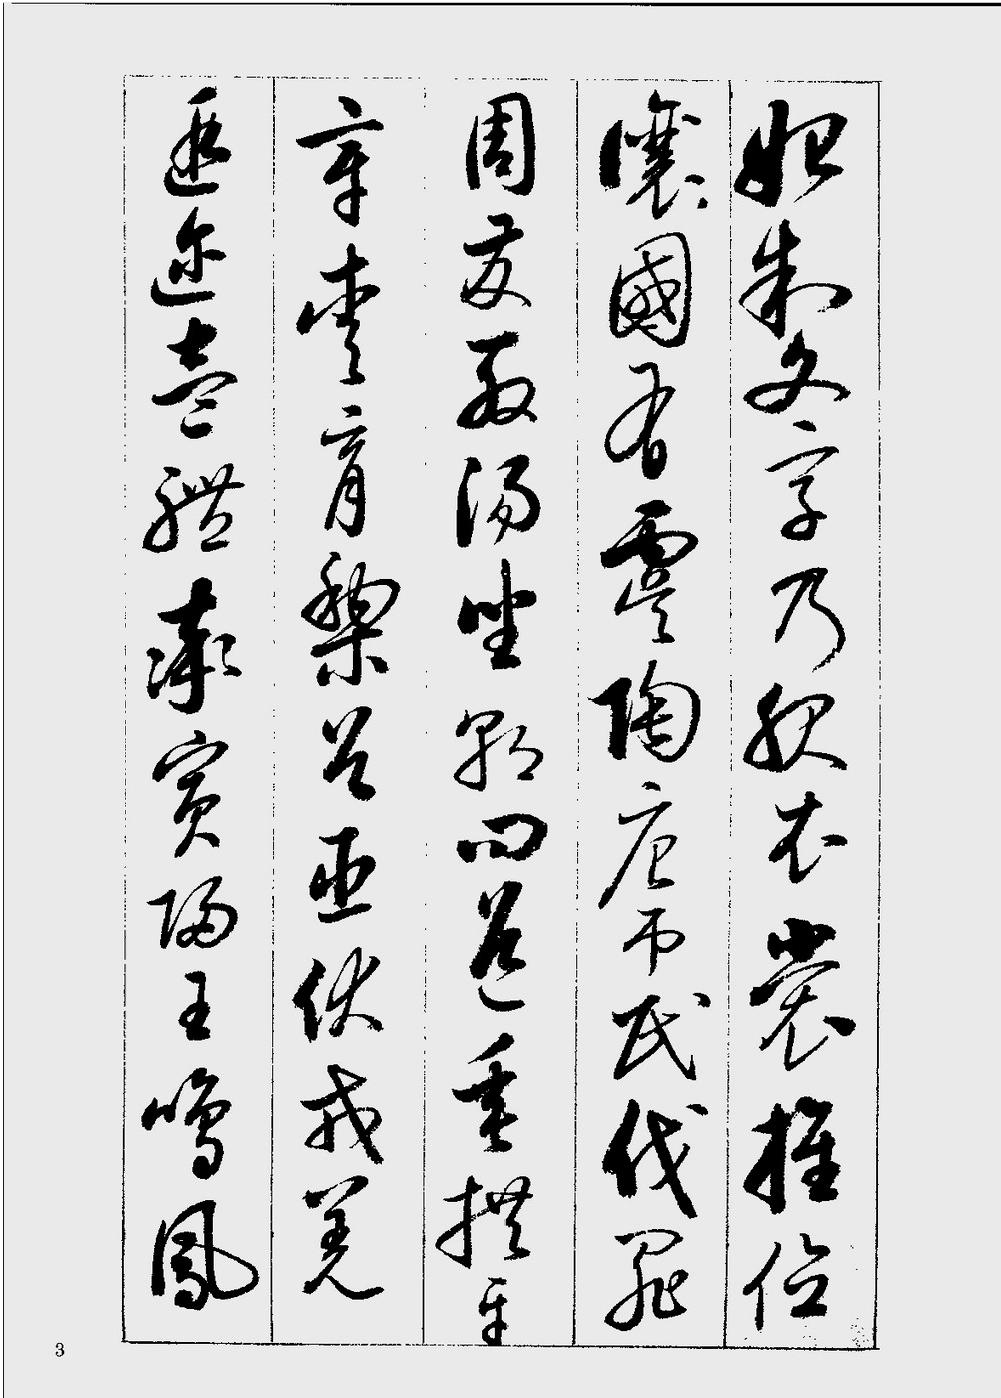 始制文字乃服衣裳推位
讓國有虞陶唐弔民伐罪
周發殷湯坐朝問道垂拱平
章愛育黎首臣伏戎羌
遐迩壹體率賓歸王鳴鳳
3